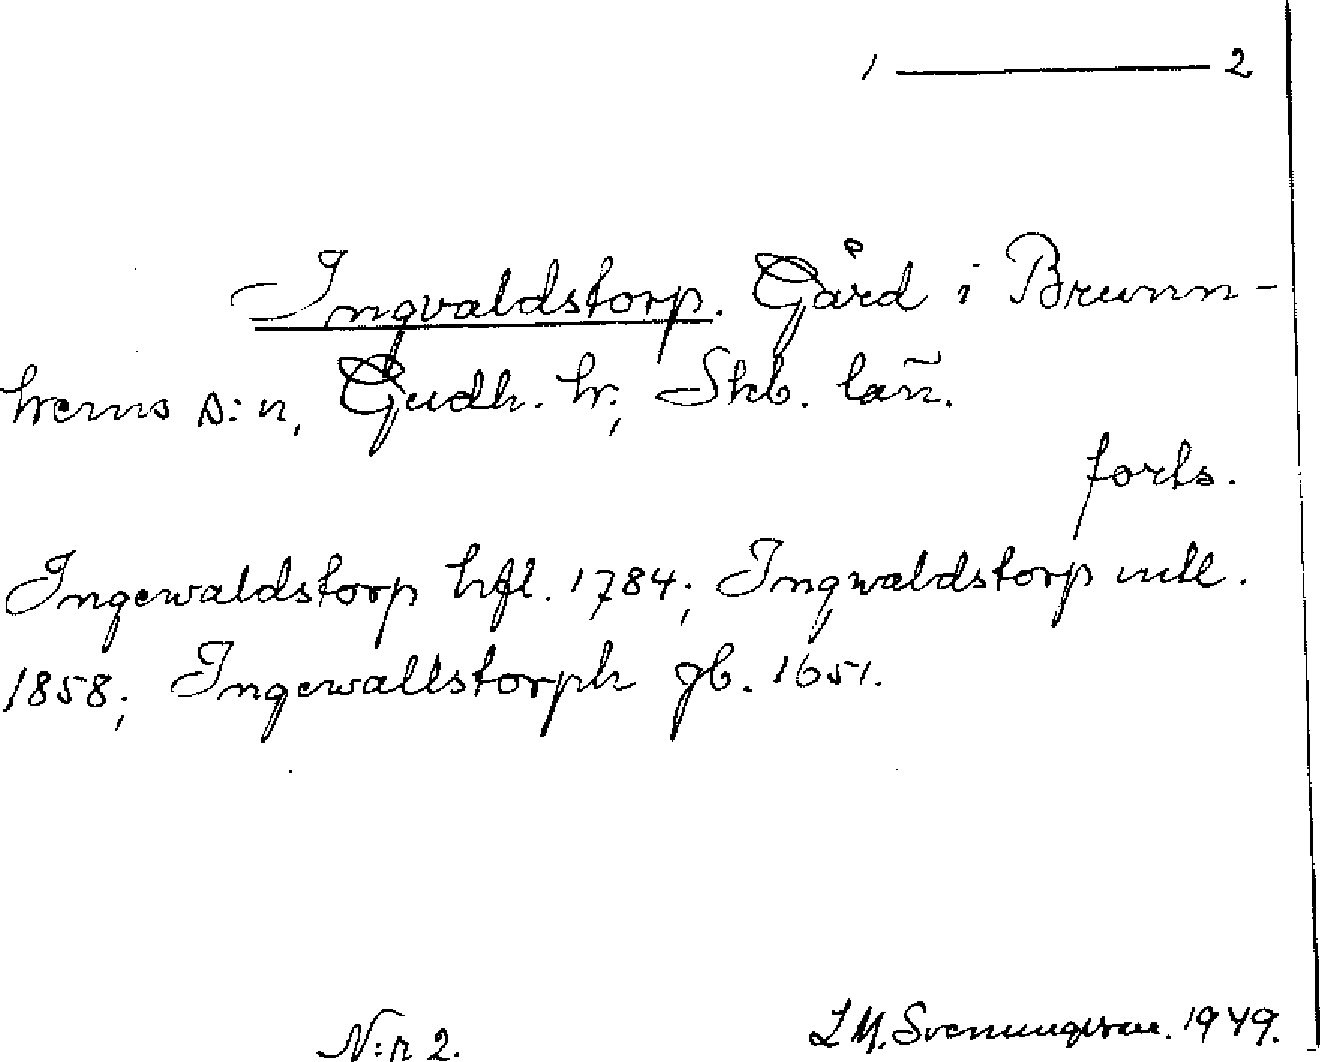 1 ——— 2
Ingvaldstorp. Gård i Brunn-
hems s:n, Gudh. hr., Skb. län.
forts.
Ingewaldstorp hfl. 1784; Ingwaldstorp utl.
1858; Ingewalltstorph jb. 1651.
N:r 2. L.M. Svenungsson. 1949.